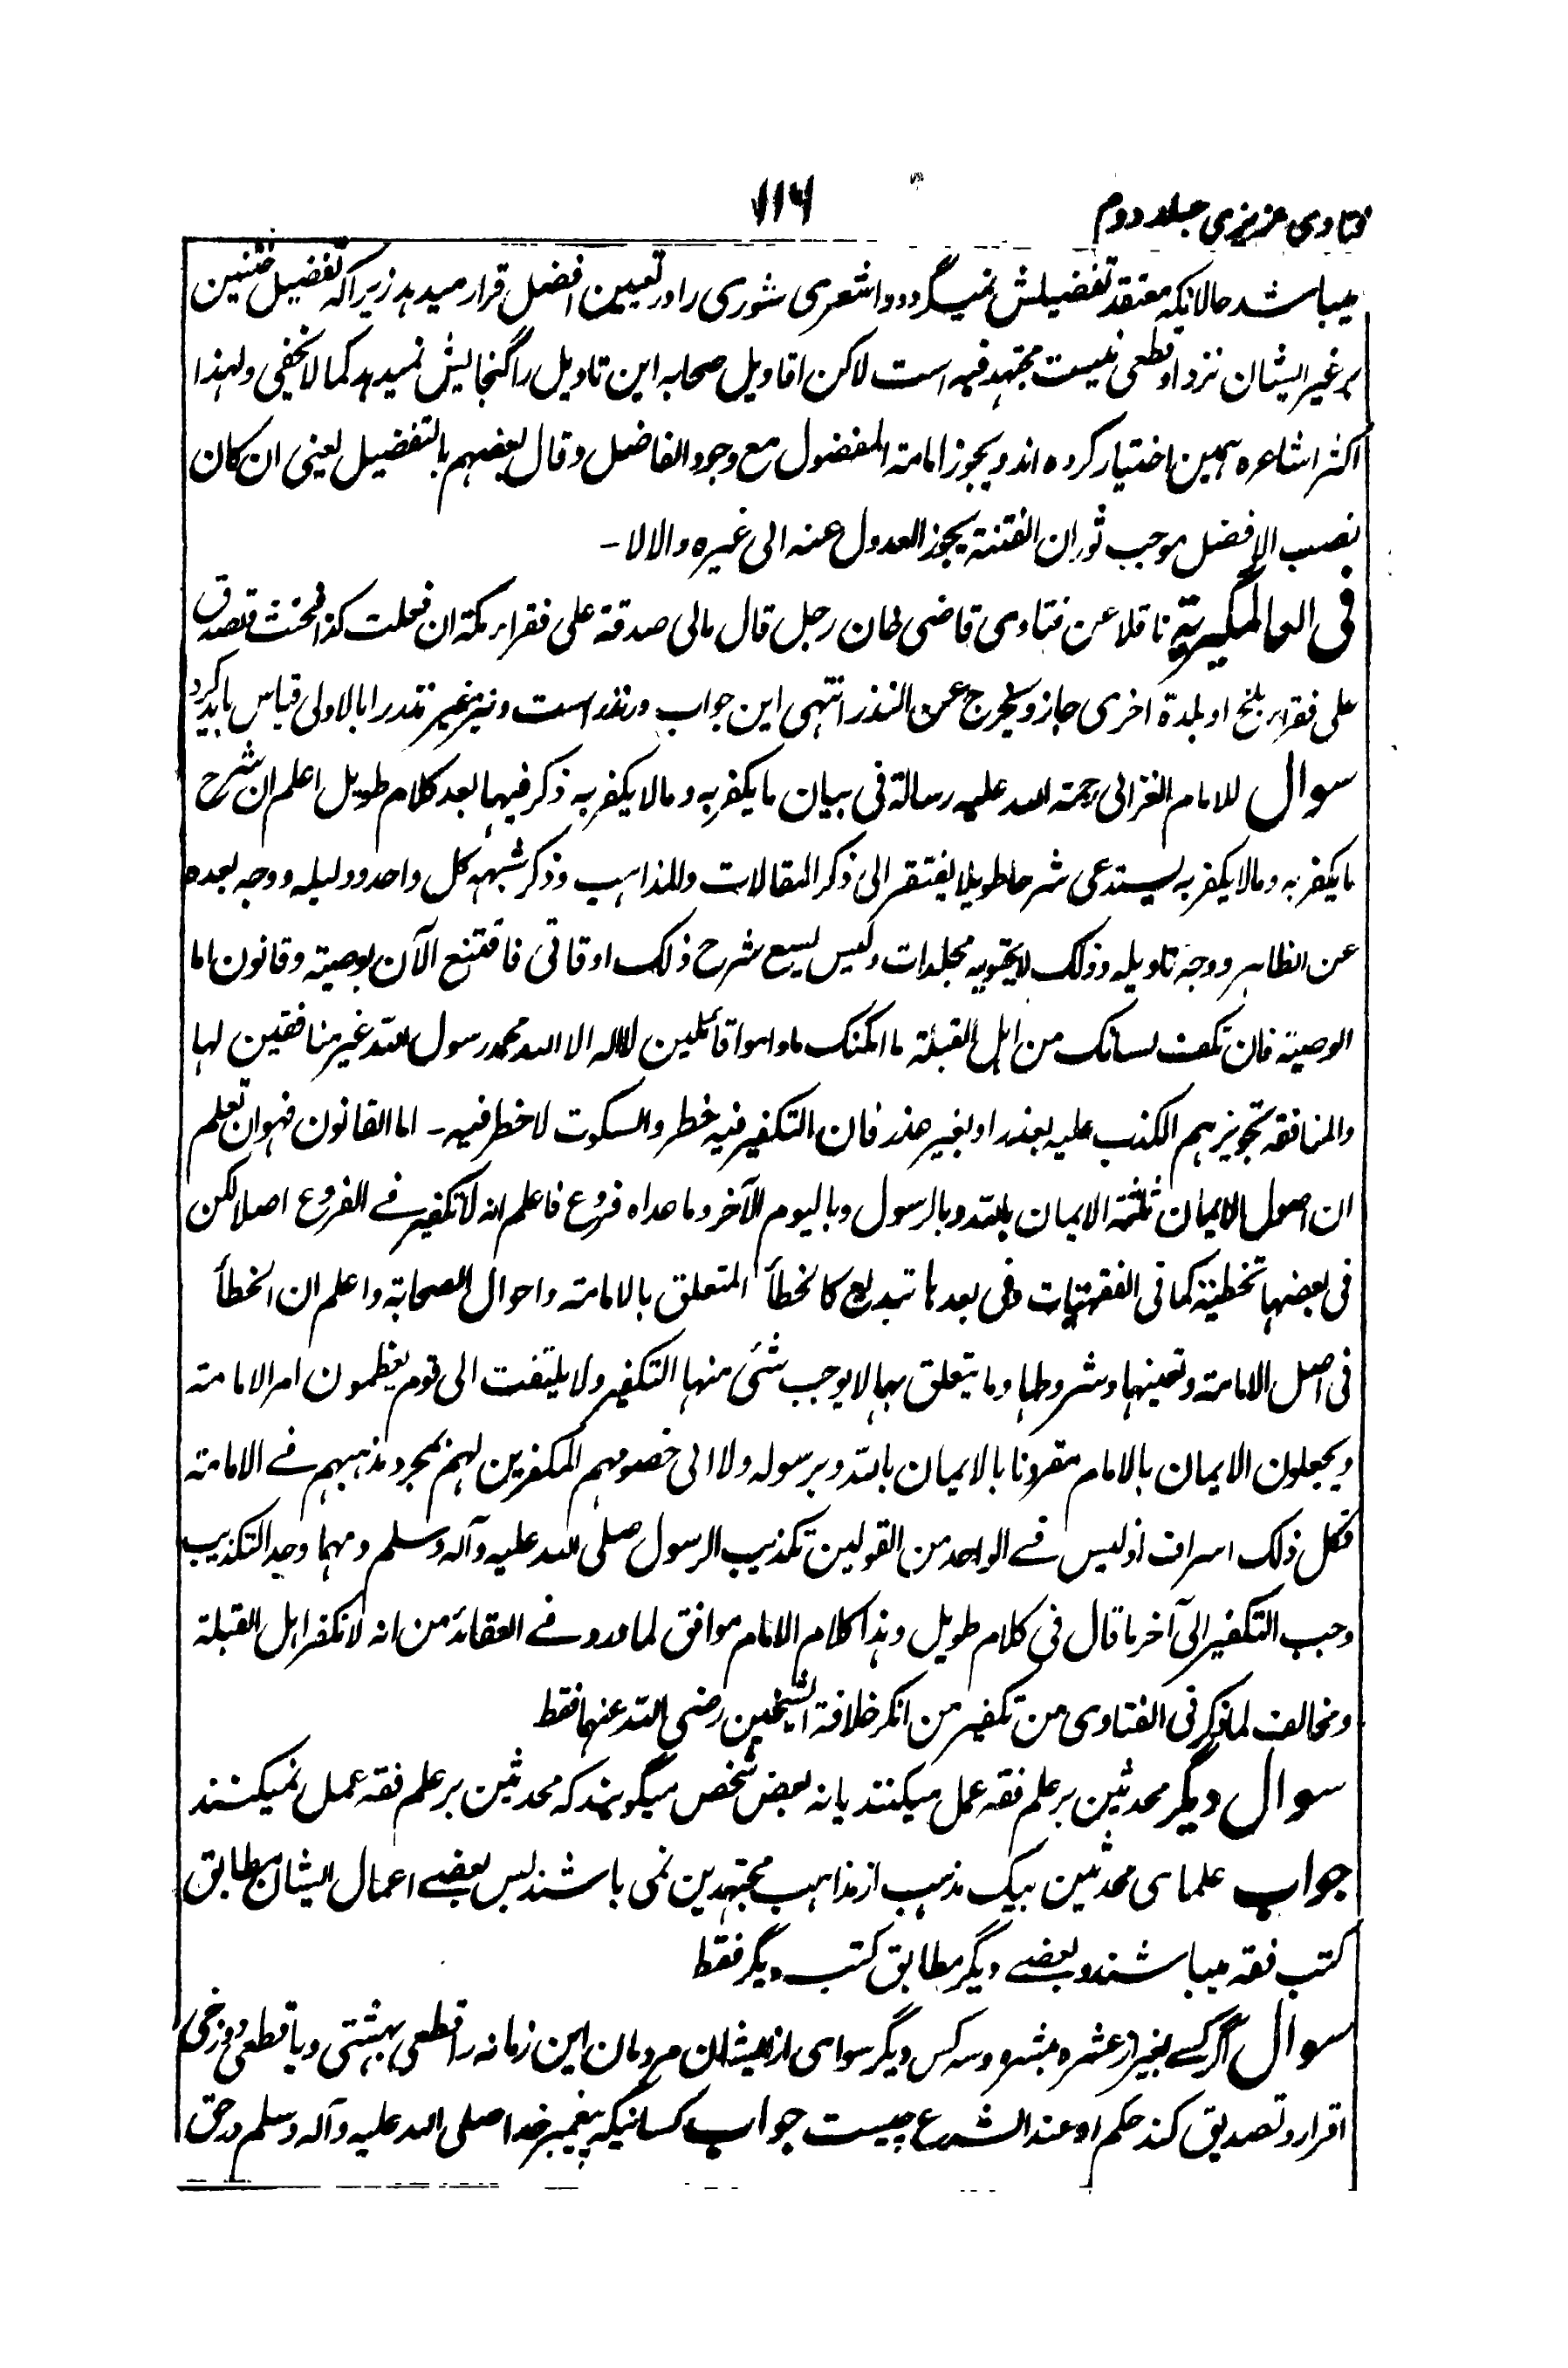 فتاوی عزیزی جلد دوم
١١٦
میباشد حالانکه معتقد تفضیلش نمیگردد و اشعری شوری را در تعیین افضل قرار میدهد زیراکه تفضیل ختنین
بر غیر ایشان نزد او قطعی نیست مجتهد فیه است لاکن اقاویل صحابه این تاویل را گنجایش نمیدهد کما لا یخفی ولهذا
اکثر اشاعره همین اختیار کرده اند و یجوز امامة المفضول مع وجود الفاضل و قال بعضهم بالتفضیل یعنی ان کان
نصب الافضل موجب ثوران الفتنة یجوز العدول عنه الی غیره والا لا -
فی العالمگیریة ناقلا عن فتاوی قاضی خان رجل قال مالی صدقة علی فقراء مکة ان فعلت کذا فحنث فتصدق
علی فقراء بلخ او بلدة اخری جاز و یخرج عن النذر انتهی این جواب در نذر است و نیز غیر نذر را بالاولی قیاس باید کرد
سوال للامام الغزالی رحمة الله علیه رسالة فی بیان ما یکفر به و ما لا یکفر به ذکر فیها بعد کلام طویل اعلم ان شرح
ما یکفر به و ما لا یکفر به یستدعی شرحا طویلا یفتقر الی ذکر المقالات والمذاهب و ذکر شبهة کل واحد و دلیله و وجه بعده
عن الظاهر و وجه تاویله و ذلک لا یحتویه مجلدات و لیس یسع شرح ذلک اوقاتی فاقتنع الآن بوصیة و قانون اما
الوصیة فان تکف لسانک من اهل القبلة ما امکنک ماداموا قائلین لا اله الا الله محمد رسول الله غیر منافقین لها
والمنافقة تجویزهم الکذب علیه بعذر او بغیر عذر فان التکفیر فیه خطر والسکوت لا خطر فیه - اما القانون فهو ان تعلم
ان اصول الایمان ثلثة الایمان بالله و بالرسول و بالیوم الآخر وما عداه فروع فاعلم انه لا تکفیر فے الفروع اصلا لکن
فی بعضها تخطیئة کما فی الفقهیات و فی بعدها تبدیع کالخطأ المتعلق بالامامة و احوال الصحابة واعلم ان الخطأ
فی اصل الامامة و تعینها و شروطها وما یتعلق بها لا یوجب شئ منها التکفیر ولا یلتفت الی قوم یعظمون امر الامامة
و یجعلون الایمان بالامام مقرونا بالایمان بالله و برسوله ولا الی خصومهم المکفرین لهم بمجرد مذهبهم فے الامامة
فکل ذلک اسراف اذ لیس فے الواحد من القولین تکذیب الرسول صلی الله علیه وآله وسلم و مهما وجد التکذیب
وجب التکفیر الی آخر ما قال فی کلام طویل و هذا کلام الامام موافق لما ورد فے العقائد من انه لا نکفر اهل القبلة
و مخالف لما ذکر فی الفتاوی من تکفیر من انکر خلافة الشیخین رضی الله عنهما فقط
سوال دیگر محدثین بر علم فقه عمل میکنند یا نه بعض شخص میگویند که محدثین بر علم فقه عمل نمیکنند
جواب علمای محدثین بیک مذهب از مذاهب مجتهدین نمی باشند پس بعضے اعمال ایشان مطابق
کتب فقه میباشند و بعضے دیگر مطابق کتب دیگر فقط
سوال اگر کسے بغیر از عشره مبشره و سه کس دیگر سوای ازیشان مردمان این زمانه را قطعی بهشتی و یا قطعی دوزخی
اقرار و تصدیق کند حکم او عند الشرع چیست جواب کسانیکه پیغمبر خدا صلی الله علیه وآله وسلم در حق